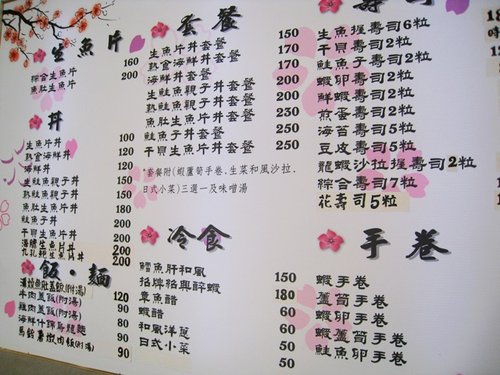 生魚片
綜合生魚片 160
魚肚生魚片 200
丼
生魚片丼 100
熟食海鮮丼 120
海鮮丼 150
生鮭魚親子丼 150
熟鮭魚親子丼 150
魚肚生魚片丼 180
鮭魚子丼 200
干貝生魚片丼 200
飯‧麵
牛肉蓋飯(附湯) 120
雞肉蓋飯(附湯) 90
海鮮什錦烏龍麵 90
馬鈴薯燉肉飯(附湯) 90
套餐
生魚片丼套餐 150
熟食海鮮丼套餐 170
海鮮丼套餐 170
生鮭魚親子丼套餐 200
熟鮭魚親子丼套餐 200
魚肚生魚片丼套餐 230
鮭魚子丼套餐 250
干貝生魚片丼套餐 250
*套餐附(蝦蘆筍手卷,生菜和風沙拉,
日式小菜)三選一及味噌湯
冷食
鱈魚肝和風 150
招牌紹興醉蝦 180
章魚醋 60
蝦醋 60
和風洋蔥 50
日式小菜 50
壽司
生魚握壽司6粒
干貝壽司2粒
鮭魚子壽司2粒
蝦卵壽司2粒
鮮蝦壽司2粒
煎蛋壽司2粒
海苔壽司5粒
豆皮壽司5粒
龍蝦沙拉握壽司2粒
綜合壽司7粒
花壽司5粒
手卷
蝦手卷
蘆筍手卷
蝦卵手卷
蝦蘆筍手卷
鮭魚卵手卷